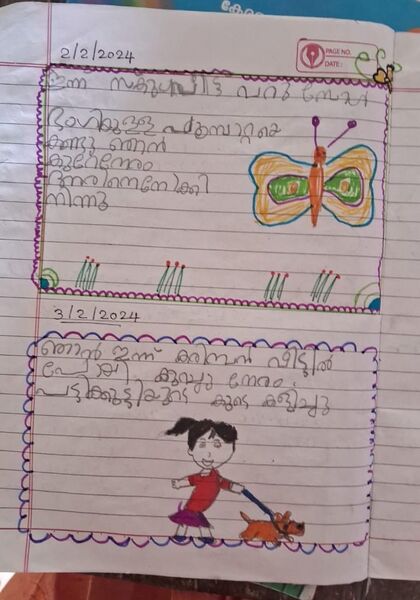 കേര
PAGE NO.
DATE:
2/2/2024
ഇന്ന് സ്കൂൾവിട്ട് വന്ന
ഭംഗിയുള്ള പൂമ്പാറ്റയെ
കണ്ടു ഞാൻ
കുറേനേരം
അതിനെനോക്കി
നിന്നു
3/2/2024
ഞാൻ ഇന്ന് കരിമ്പൻ വീട്ടിൽ
പോയി കുറച്ചു നേരം.
പട്ടിക്കുട്ടിയുടെ കൂടെ കളിച്ചു